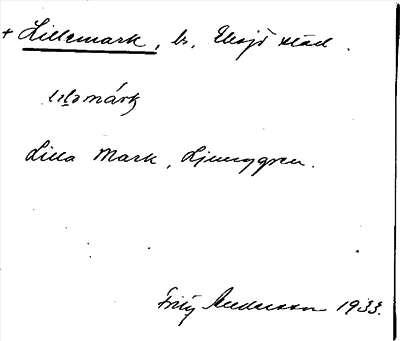 + Lillemark, br, Eksjö stad.
Lilla Mark, Ljunggren.
Fritz Andersson 1933.